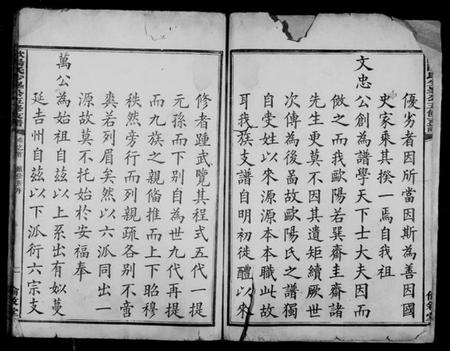 優劣者因所當因斯為善因國
史家乘其揆一焉自我祖
文忠公創為譜學天下士大夫因而
倣之而我歐陽若巽齋圭齋諸
先生更莫不因其遺矩續厥世
次傳為後啚故歐陽氏之譜獨
自堂姓以來源源本本職此故
耳我族支譜自明初徙醴以來
修者踵武覽其程式五代一提
元孫而下別自為世九代再提
而九族之親偹推而上下昭穆
秩然旁行而列親疏各別不啻
爽若列眉矣然以六派同出一
源故莫不托始於安福奉
萬公為始祖自茲以上系出有如蔓
延吉州自茲以下派衍六宗支